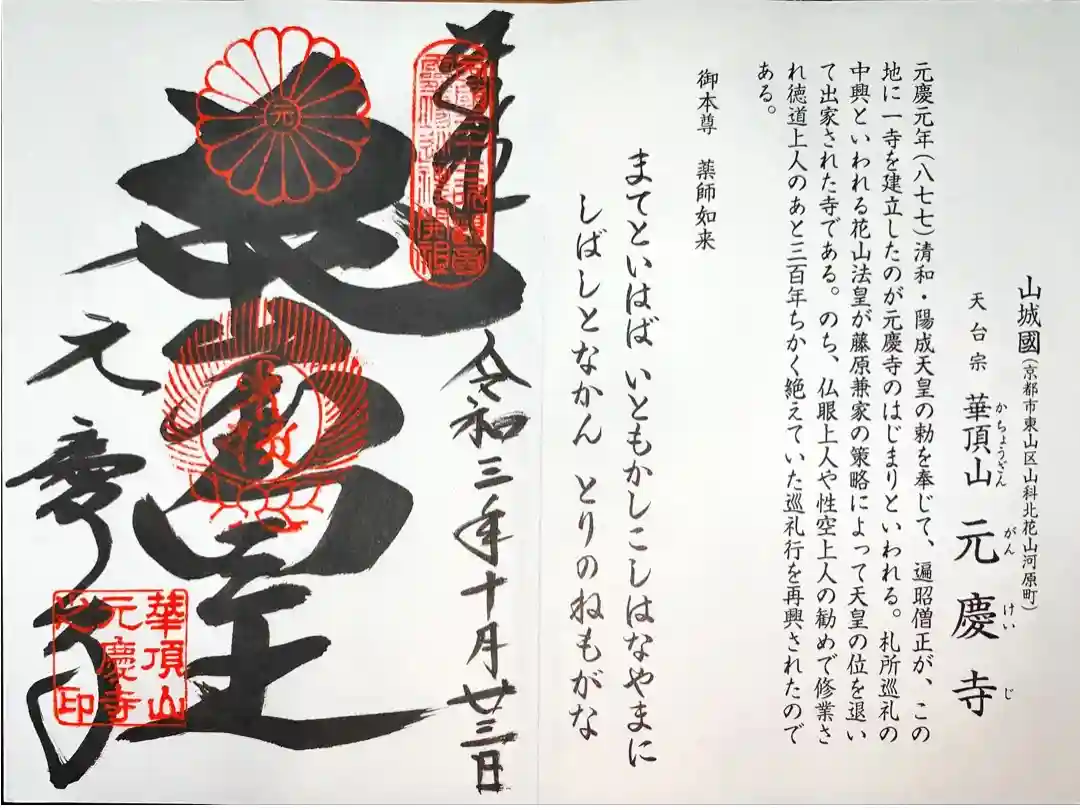 山城國(京都市東山区山科北花山河原町)
天台宗 華頂山 元慶寺
かちょうざん がんけいじ
元慶元年(八七七)清和・陽成天皇の勅を奉じて、遍昭僧正が、この
地に一寺を建立したのが元慶寺のはじまりといわれる。札所巡礼の
中興といわれる花山法皇が藤原兼家の策略によって天皇の位を退い
て出家された寺である。のち、仏眼上人や性空上人の勧めで修業さ
れ徳道上人のあと三百年ちかく絶えていた巡礼行を再興されたので
ある。
御本尊 薬師如来
まてといはば いともかしこしはなやまに
しばしとなかん とりのねもがな
奉拝
令和三年十月廿三日
元
元慶寺
華頂山
元慶寺
之印